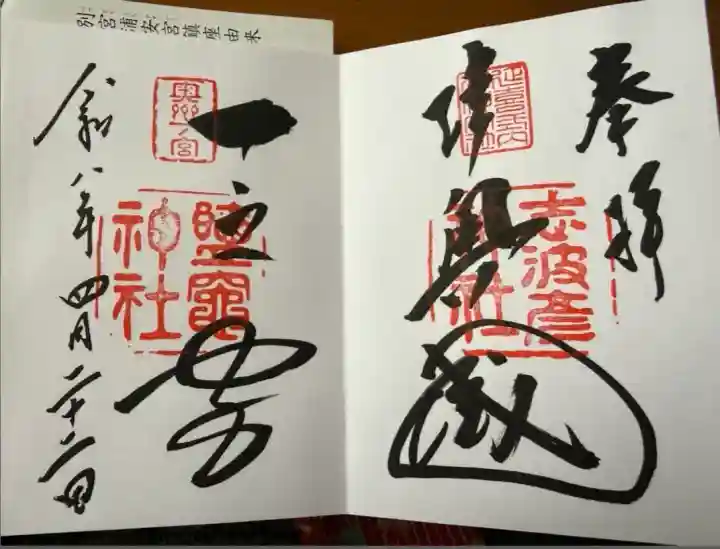 奉拝
陸奥國
志波彦
神社
一之宮
奥州一宮
鹽竈
神社
令和八年四月二十二日
別宮浦安宮鎮座由来